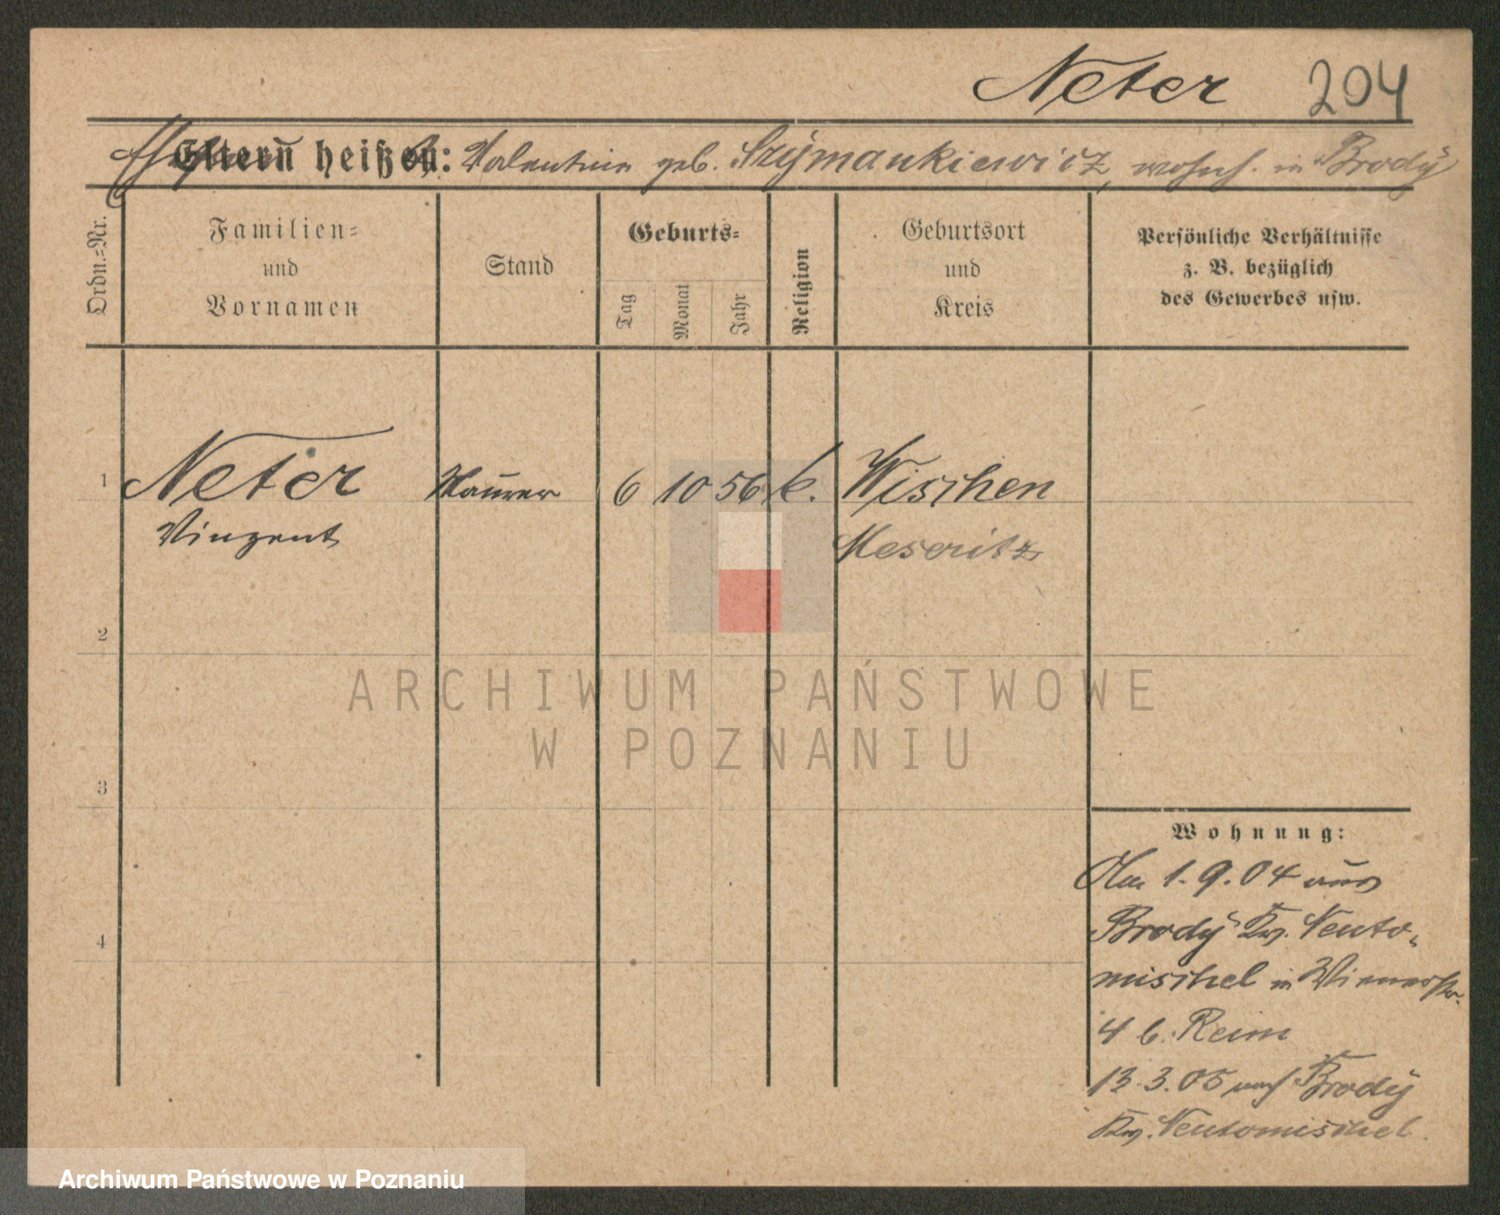 Neter 204
Eltern heißen: Valentine geb. Szÿmankiewicz, wohnh. in Brodÿ
Ordn.-Nr.
Familien-
und
Vornamen
Stand
Geburts-
Tag
Monat
Jahr
Religion
Geburtsort
und
Kreis
Persönliche Verhältnisse
z. B. bezüglich
des Gewerbes usw.
1 Neter Maurer 6 10 56 k. Wischen
Vinzent Meseritz
2
ARCHIWUM PAŃSTWOWE
W POZNANIU
3
Wohnung:
1.9.04 aus
4 Brodÿ Kr. Neuto-
mischel in Wienerstr.
4 b. Reim
13.3.05 nach Brodÿ
Kr. Neutomischel.
Archiwum Państwowe w Poznaniu